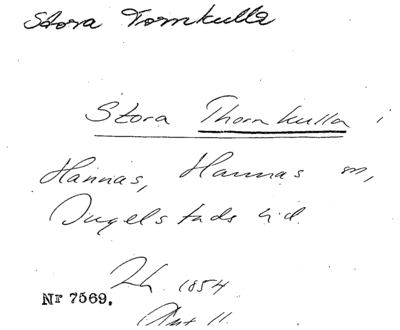 Stora Tornkulla
Stora Thornkulla i
Hannas, Hannas sn,
Ingelstads hd.
1854
Nr 7569.